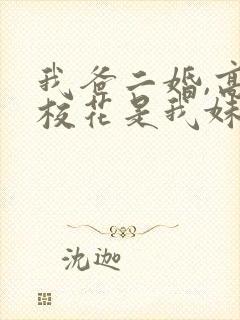 我爸二婚,高
校花是我妹
沈迦